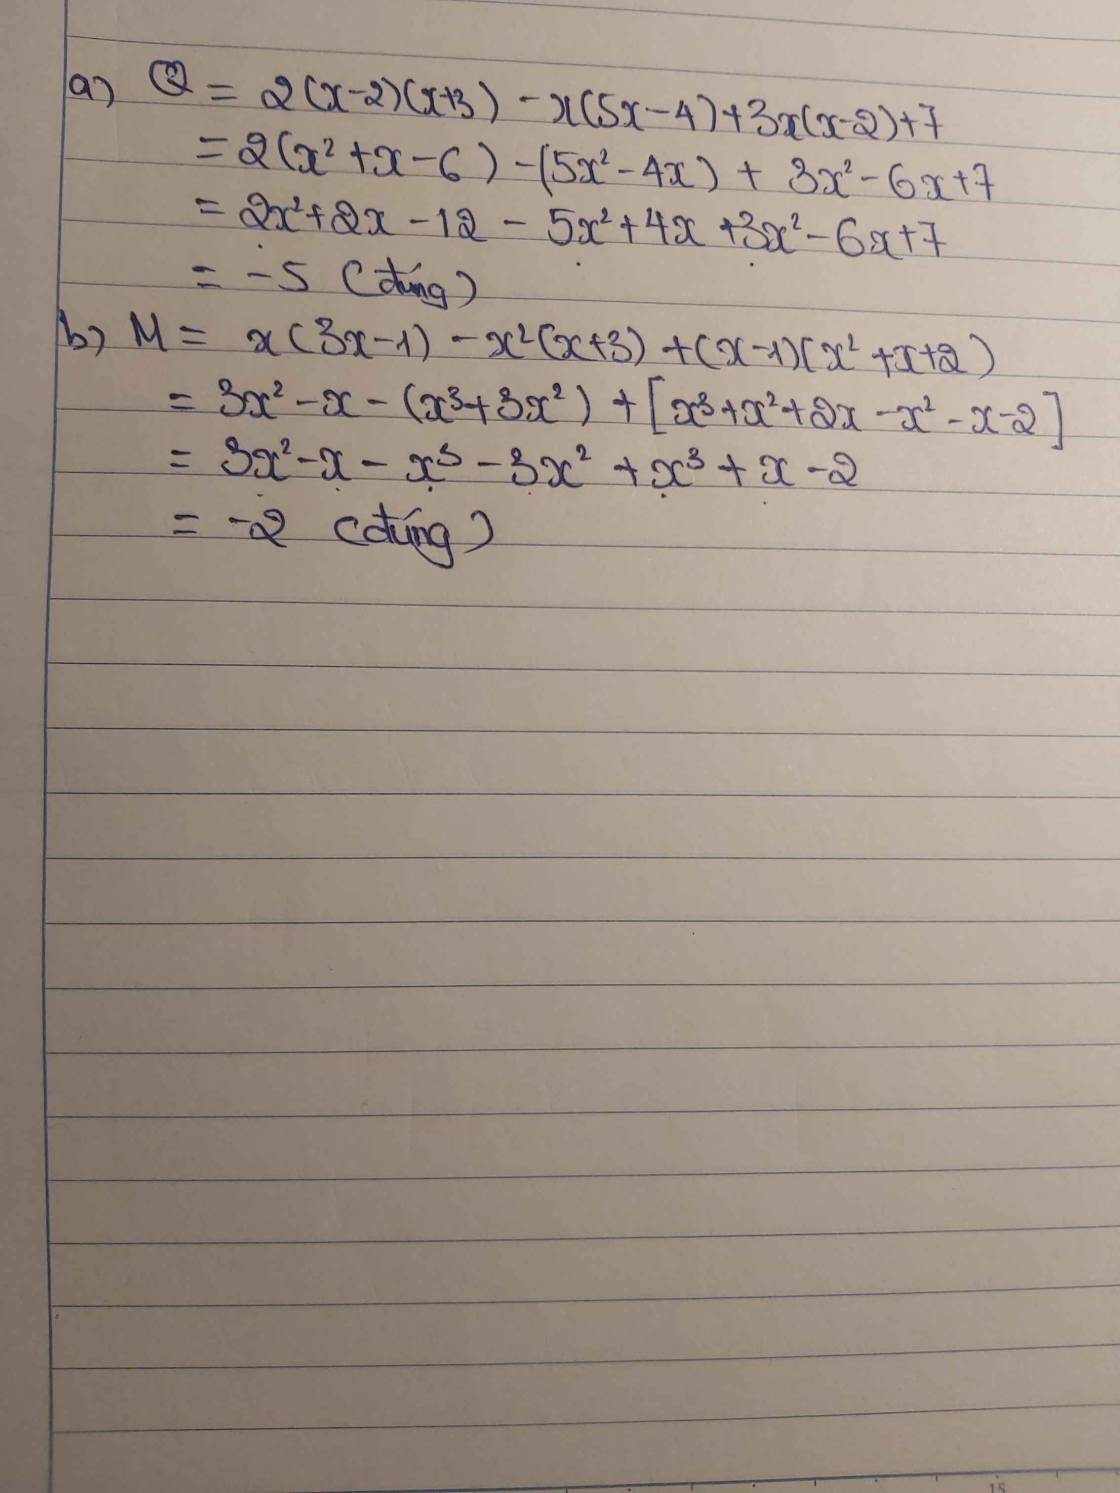 a) Q = 2(x-2)(x+3) - x(5x-4)+3x(x-2)+7
= 2(x² + x - 6) - (5x² - 4x) + 3x² - 6x + 7
= 2x² + 2x - 12 - 5x² + 4x + 3x² - 6x + 7
= -5 (đúng)
b) M = x(3x-1) - x²(x+3) + (x-1)(x² + x + 2)
= 3x² - x - (x³ + 3x²) + [x³ + x² + 2x - x² - x - 2]
= 3x² - x - x³ - 3x² + x³ + x - 2
= -2 (đúng)
15